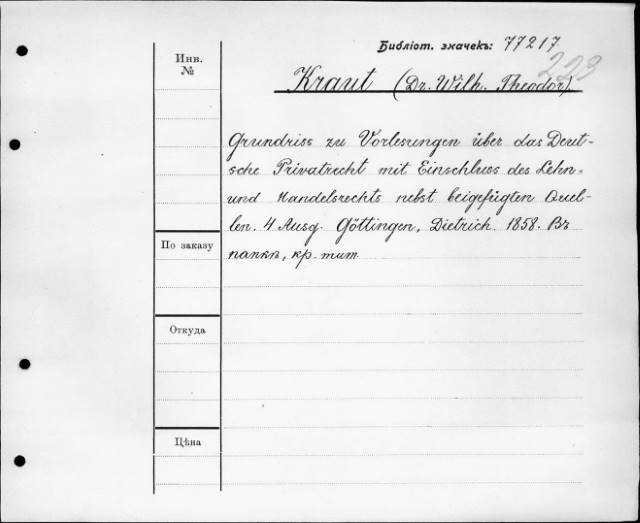 Библіот. значекъ: 77217
223
Инв.
№
Kraut (Dr. Wilh. Theodor)
Grundriss zu Vorlesungen über das Deut-
sche Privatrecht mit Einschluss des Lehn-
und Handelsrechts nebst beigefügten Quel-
len. 4 Ausg. Göttingen, Dietrich. 1858. Въ
По заказу
папкѣ, кр. тит
Откуда
Цѣна